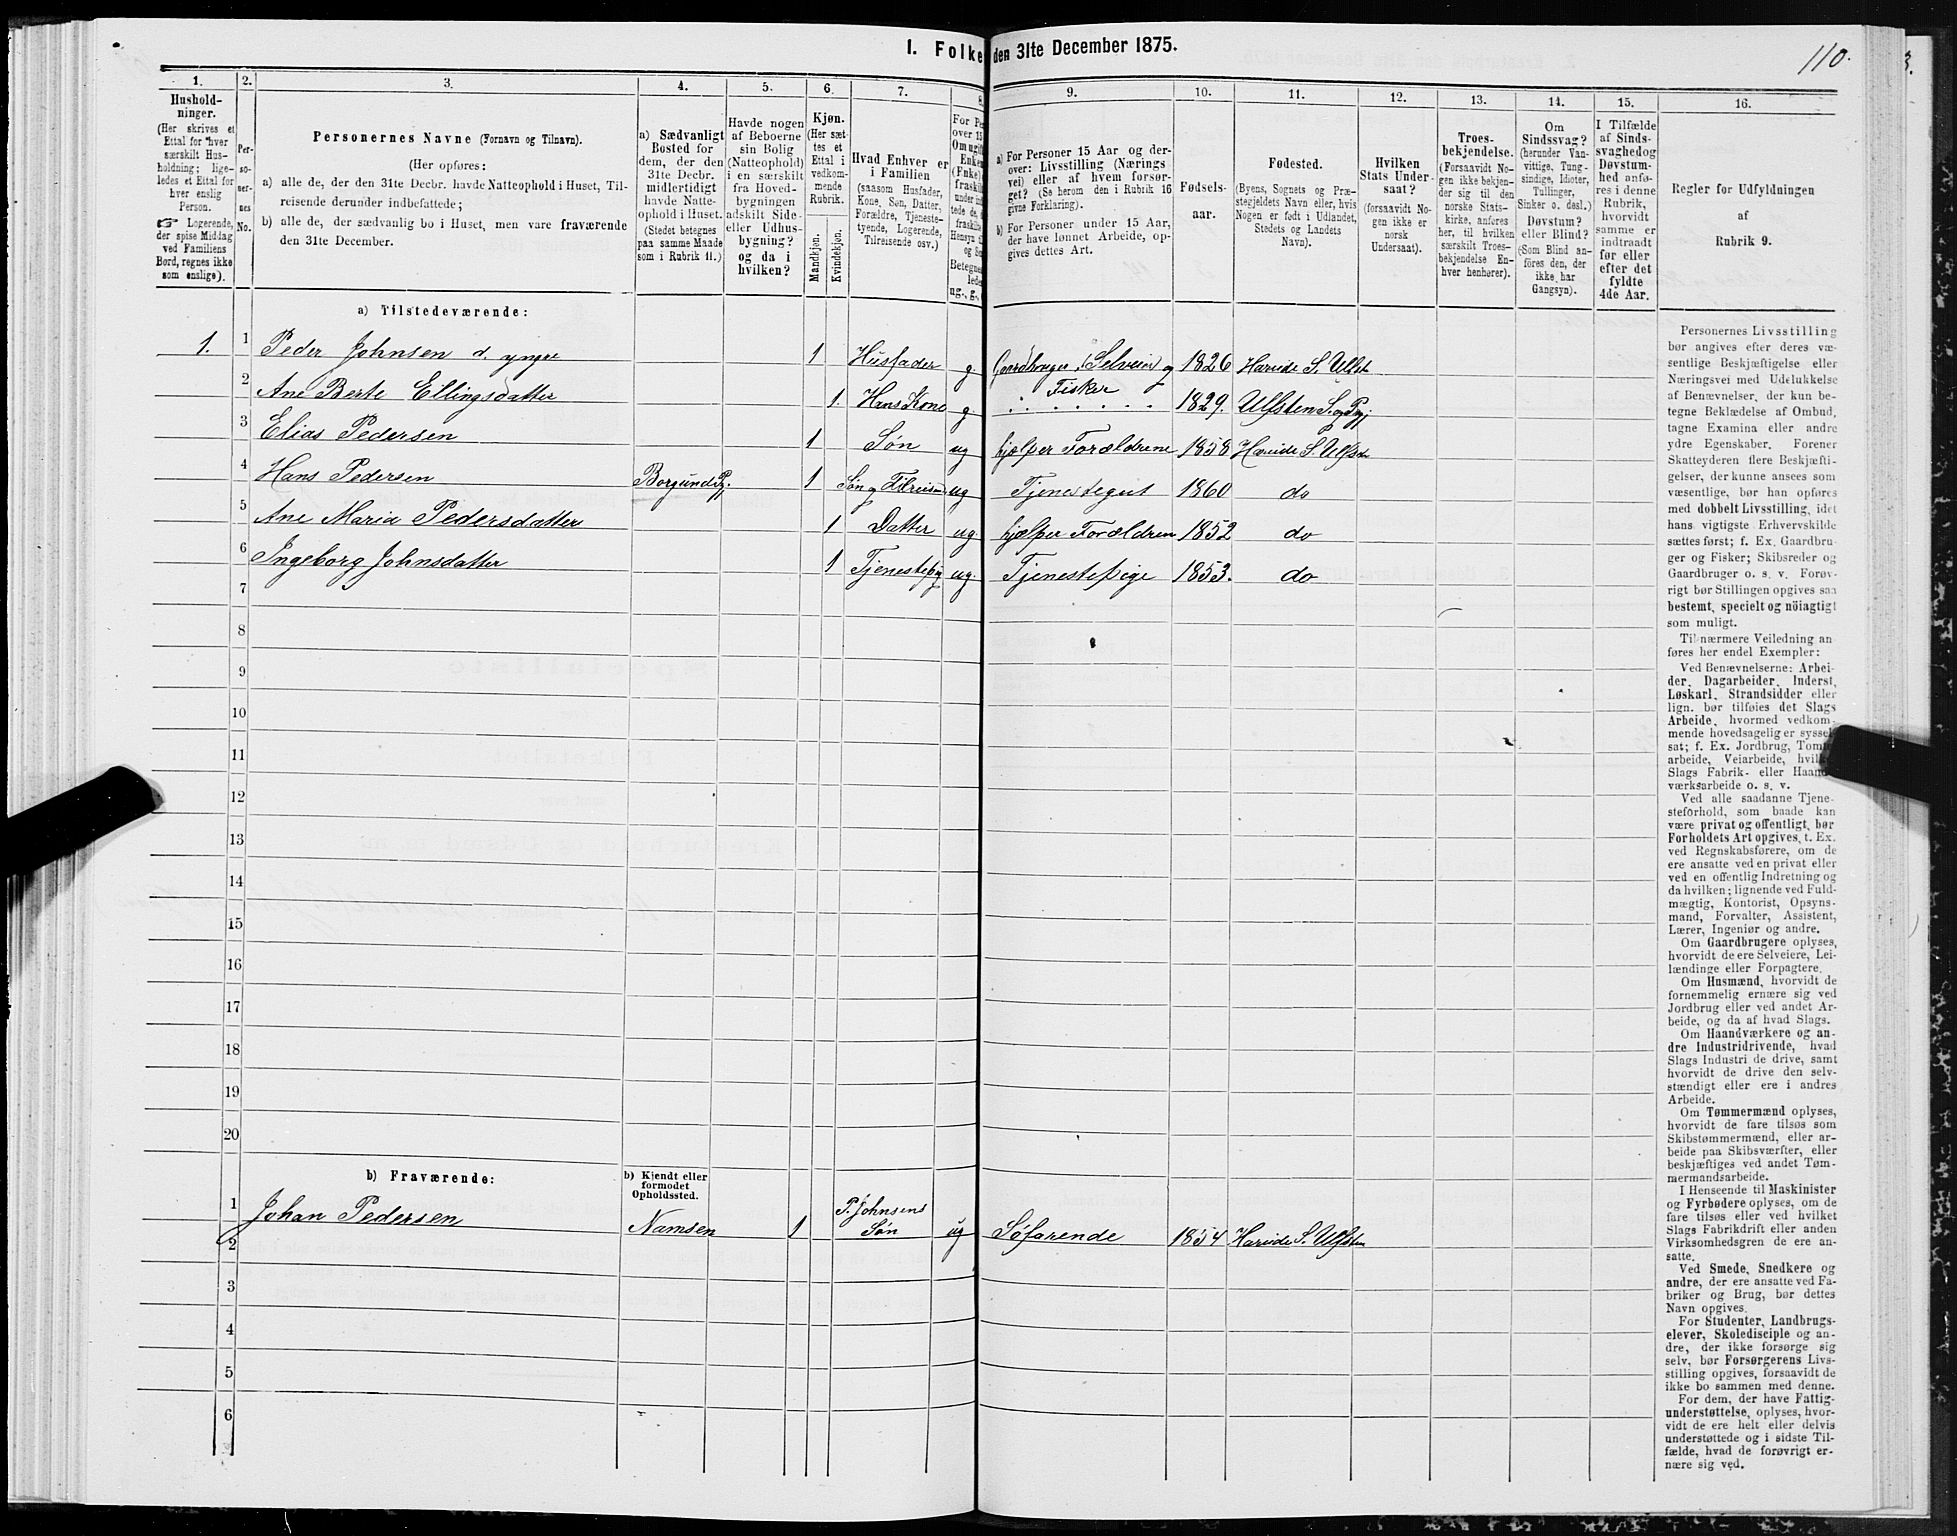 I. Folke den 31te December 1875.
110.
1. 2. 3. 4. 5. 6. 7. 8. 9. 10. 11. 12. 13. 14. 15. 16.
Hushold-
ninger.
(Her skrives et
Ettal for hver
særskilt Hus-
holdning; lige-
ledes et Ettal for
hver enslig
Person.
☞ Logerende,
der spise Middag
ved Familiens
Bord, regnes ikke
som enslige).
Per-
so-
ner-
nes
No.
Personernes Navne (Fornavn og Tilnavn).
(Her opføres:
a) alle de, der den 31te Decbr. havde Natteophold i Huset, Til-
reisende derunder indbefattede;
b) alle de, der sædvanlig bo i Huset, men vare fraværende
den 31te December.
a) Sædvanligt
Bosted for
dem, der den
31te Decbr.
midlertidigt
havde Natte-
ophold i Huset.
(Stedet betegnes
paa samme Maade
som i Rubrik 11.)
Havde nogen
af Beboerne
sin Bolig
(Natteophold)
i en særskilt
fra Hoved-
bygningen
adskilt Side-
eller Udhus-
bygning?
og da i
hvilken?
Kjøn.
(Her sæt-
tes et
Ettal i
vedkom-
mende
Rubrik.
Mandkjøn.
Kvindekjøn.
Hvad Enhver er
i Familien
(saasom Husfader,
Kone, Søn, Datter,
Forældre, Tjeneste-
tyende, Logerende,
Tilreisende osv.)
For Pe
over 15
Om ugift
Enke
(Enke)
fraskilt
under ind
tede de, d
fraskilt
Hensyn
og Se
Betegne
lede
ug., g.,
a) For Personer 15 Aar og der-
over: Livsstilling (Nærings
vei) eller af hvem forsør-
get? (Se herom den i Rubrik 16
givne Forklaring).
b) For Personer under 15 Aar,
der have lønnet Arbeide, op-
gives dettes Art.
Fødsels-
aar.
Fødested.
(Byens, Sognets og Præ-
stegjeldets Navn eller, hvis
Nogen er født i Udlandet,
Stedets og Landets
Navn).
Hvilken
Stats Under-
saat?
(forsaavidt No-
gen ikke er
norsk
Undersaat).
Troes-
bekjendelse.
(Forsaavidt No-
gen ikke bekjen-
der sig til den
norske Stats-
kirke, anføres
her, til hvilken
særskilt Troes-
bekjendelse En-
hver henhører).
Om
Sindssvag?
(herunder Van-
vittige, Tung-
sindige, Idioter,
Tullinger,
Sinker o. desl.)
Døvstum?
eller Blind?
(Som Blind an-
føres den, der
ikke har
Gangsyn).
I Tilfælde
af Sinds-
svaghedog
Døvstum-
hed anfø-
res i denne
Rubrik,
hvorvidt
samme er
indtraadt
før eller
efter det
fyldte
4de Aar.
Regler før Udfyldningen
af
Rubrik 9.
a) Tilstedeværende:
1. 1 Peder Johnsen d. yngre 1 Husfader g. Gaardbruger (Selveier) og Fisker 1826 Hareide S. Ulfst
2 Ane Berte Ellingsdatter 1. Hans Kone g. 1829. Ulfsten S. og Pgj
3 Elias Pedersen 1 Søn ug hjælper Forældrene 1858 Hareide S. Ulfsten
4 Hans Pedersen Borgunds Pgj. 1 Søn og Tilreisend ug Tjenestegut 1860 do
5 Ane Maria Pedersdatter 1 Datter ug. hjælper Forældren 1852 do
6 Ingeborg Johnsdatter 1 Tjenestepig ug. Tjenestepige 1853. do
7
8
9
10
11
12
13
14
15
16
17
18
19
20
b) Fraværende:
b) Kjendt eller
formodet
Opholdssted.
1 Johan Pedersen Namsen 1 P. Johnsens Søn ug Søfarende 1854 Hareide S. Ulfsten
2
3
4
5
6
Personernes Livsstilling
bør angives efter deres væ-
sentlige Beskjæftigelse eller
Næringsvei med Udelukkelse
af Benævnelser, der kun be-
tegne Beklædelse af Ombud,
tagne Examina eller andre
ydre Egenskaber. Forener
Skatteyderen flere Beskjæfti-
gelser, der kunne ansees som
væsentlige, bør han opføres
med dobbelt Livsstilling, idet
hans vigtigste Erhvervskilde
sættes først; f. Ex. Gaardbru-
ger og Fisker; Skibsreder og
Gaardbruger o. s. v. Forøv-
rigt bør Stillingen opgives saa
bestemt, specielt og nöiagtigt
som muligt.
Til nærmere Veiledning an-
føres her endel Exempler:
Ved Benævnelserne: Arbei-
der, Dagarbeider, Inderst,
Løskarl, Strandsidder eller
lign. bør tilføies det Slags
Arbeide, hvormed vedkom-
mende hovedsagelig er syssel-
sat; f. Ex. Jordbrug, Tomt
arbeide, Veiarbeide, hvilk
Slags Fabrik- eller Haand
værksarbeide o. s. v.
Ved alle saadanne Tjene-
steforhold, som baade kan
være privat og offentligt, bør
Forholdets Art opgives, t. Ex.
ved Regnskabsførere, om de
ere ansatte ved en privat eller
ved en offentlig Indretning og
da hvilken; lignende ved Fuld-
mægtig, Kontorist, Opsyns-
mand, Forvalter, Assistent,
Lærer, Ingeniør og andre.
Om Gaardbrugere oplyses,
hvorvidt de ere Selveiere, Lei-
lændinge eller Forpagtere.
Om Husmænd, hvorvidt de
fornemmelig ernære sig ved
Jordbrug eller ved andet Ar-
beide, og da af hvad Slags.
Om Haandværkere og an-
dre Industridrivende, hvad
Slags Industri de drive, samt
hvorvidt de drive den selv-
stændigt eller ere i andres
Arbeide.
Om Tømmermænd oplyses,
hvorvidt de fare tilsøs som
Skibstømmermænd, eller ar-
beide paa Skibsværfter, eller
beskjæftiges ved andet Tøm-
mermandsarbeide.
I Henseende til Maskinister
og Fyrbødere oplyses, om de
fare tilsøs eller ved hvilket
Slags Fabrikdrift eller anden
Virksomhedsgren de ere an-
satte.
Ved Smede, Snedkere og
andre, der ere ansatte ved Fa-
briker og Brug, bør dettes
Navn opgives.
For Studenter, Landbrugs-
elever, Skoledisciple og an-
dre, der ikke forsørge sig
selv, bør Forsørgerens Livs-
stilling opgives, forsaavidt de
ikke bo sammen med denne.
For dem, der have Fattig-
understøttelse, oplyses, hvor-
vidt de ere helt eller delvis
understøttede og i sidste Til-
fælde, hvad de forøvrigt er-
nære sig ved.